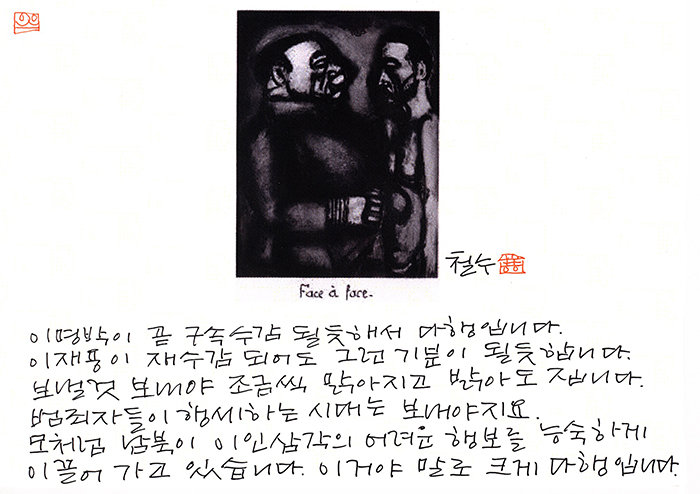 Face à face.
철수
이명박이 곧 구속수감 될듯해서 다행입니다.
이재용이 재수감 되어도 그런 기분이 될듯합니다.
보낼것 보내야 조금씩 맑아지고 밝아도 집니다.
범죄자들이 행세하는 시대는 보내야지요.
모처럼 남북이 이인삼각의 어려운 행보를 능숙하게
이끌어 가고 있습니다. 이거야 말로 크게 다행입니다.